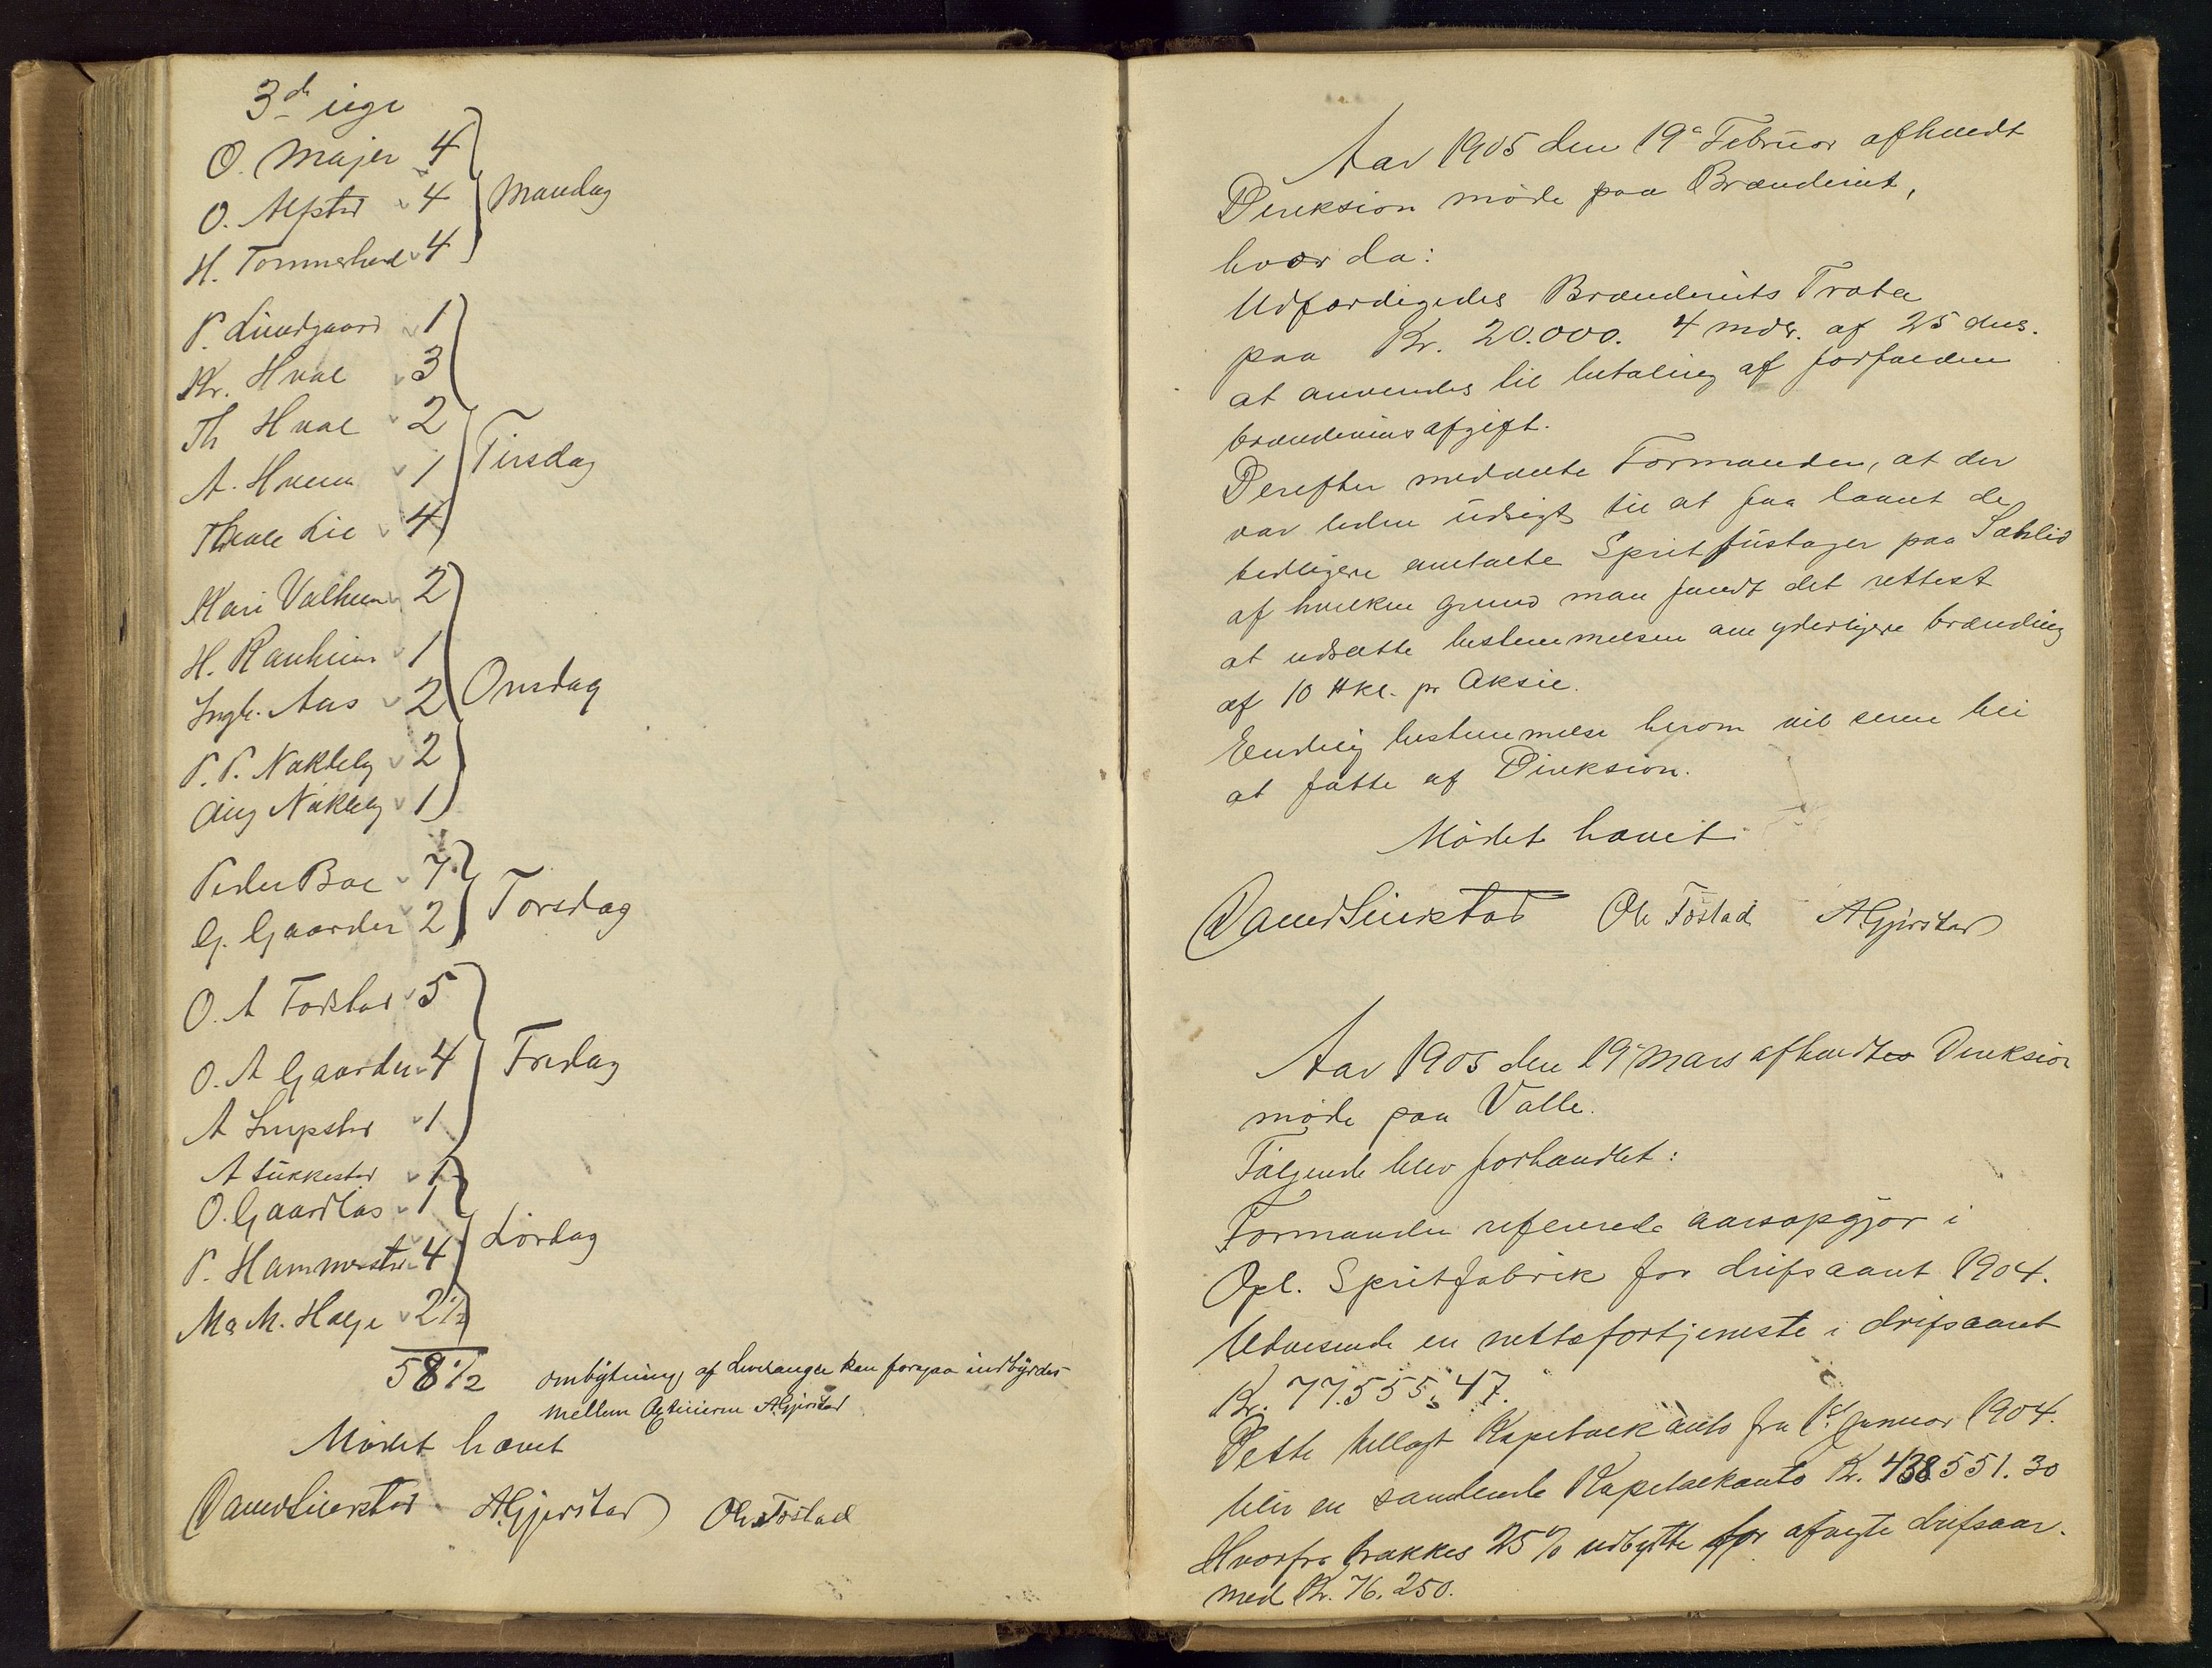 3die uge
O. Majer 4
O. Alfstad 4
H. Tommerhod 4
Mandag
P. Lundgaard 1
Kr. Hval 3
Th Hval 2
A. Hveem 1
Thvale Lie 4
Tirsdag
Kari Valhum 2
H. Rauheim 1
Ingb. Aas 2
P. P. Nøkleby 2
Aug Nøkleby 1
Onsdag
Peder Boe 7
G. Gaarder 2
Torsdag
O. A Fodstad 5
O. A Gaarder 4
A 1
Fredag
A Sukkestad 1
O. Gaardløs 1
P. Hammerstad 4
M. Helge 2½
Lørdag
58½
ombytning af Leverangse kan foregaa indbyrdes
mellem Agtieierne AGjerstad
Mødet hævet
AGjerstad Ole Tøstad
Aar 1905 den 19de Februar afholdt
Direksion møde paa Brænderiet,
hvor da:
Udfærdigedes Brænderiets Trata
paa Kr. 20.000. 4 mdr. af 25 dns.
at anvendes til betaling af forfalden
brændevinsafgift.
Derefter meddelte Formanden, at der
var liden udsigt til at faa laant de
tidligere omtalte Spritfustager paa Sahlid
af hvilken grund man fandt det rettest
at udsætte bestemmelsen om yderligere brænding
af 10 Hkl. pr Aksie.
Endelig bestemmelse herom vil senere blei
at fatte af Direksion.
Mødet hævet.
Ole Tøstad AGjerstad
Aar 1905 den 19de Mars afholdtes Direksion
møde paa Valle.
Følgende blev forhandlet:
Formanden refererede aarsopgjør i
Opl. Spritfabrik for driftsaaret 1904.
Udvisende en nettofortjeneste i driftsaaret
Kr. 77.555.47.
Dette tillagt Kapitalkonto fra 1st Januar 1904.
blir en samlende Kapitalkonto Kr. 438551.30
Hvorfra trækkes 25% udbytte for afvigte driftsaar.
med Kr. 76.250.